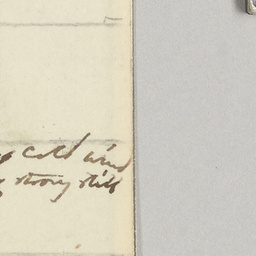 cold wind
strong still